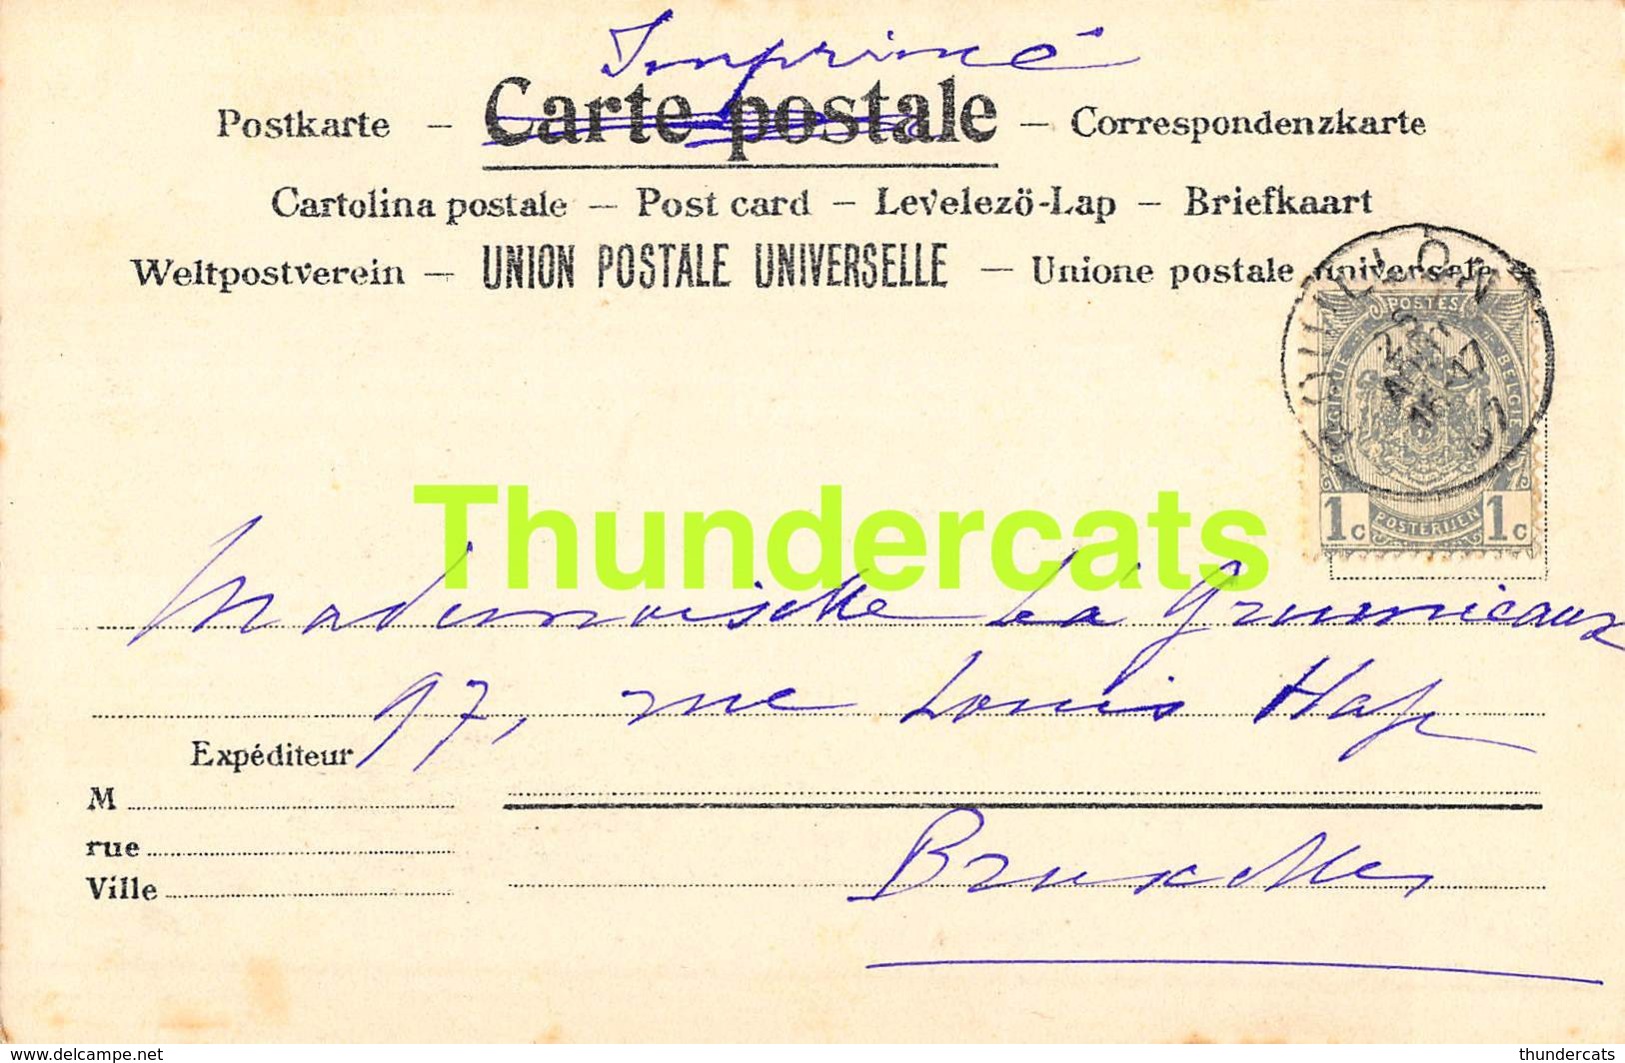 Imprimé
Postkarte – Carte postale – Correspondenzkarte
Cartolina postale – Post card – Levelezö-Lap – Briefkaart
Weltpostverein – UNION POSTALE UNIVERSELLE – Unione postale universale
POSTES
BELGIQUE BELGIE
1c POSTERIJEN 1c
07
Thundercats
Mademoiselle Léa Grumieaux
97, rue Louis Hap
Expéditeur
M
rue
Ville
Bruxelles
www.delcampe.net
thundercats